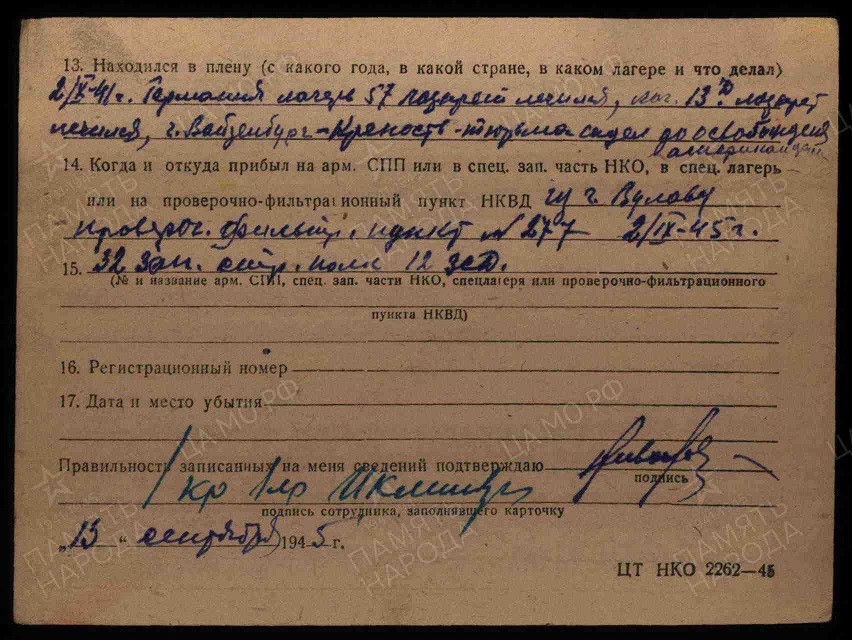 13. Находился в плену (с какого года, в какой стране, в каком лагере и что делал)
2/X-41г. Германия лагерь 57 лазарет лечился, лаг. 13Д лазарет
лечился, г. Вайценбург-Крепость-тюрьма сидел до освобождения
14. Когда и откуда прибыл на арм. СПП или в спец. зап. часть НКО, в спец. лагерь
или на проверочно-фильтрационный пункт НКВД из г. Вулову
провероч. фильтр. пункт № 277 2/IX-45г.
15. 32 Зап. стр. полк 12 ЗСД.
(№ и название арм. СПП, спец. зап. части НКО, спецлагеря или проверочно-фильтрационного
пункта НКВД)
16. Регистрационный номер
17. Дата и место убытия
Правильность записанных на меня сведений подтверждаю
подпись
подпись сотрудника, заполнявшего карточку
„13“ сентября 1945 г.
ЦТ НКО 2262—45
ПАМЯТЬ НАРОДА
ЦА МО РФ